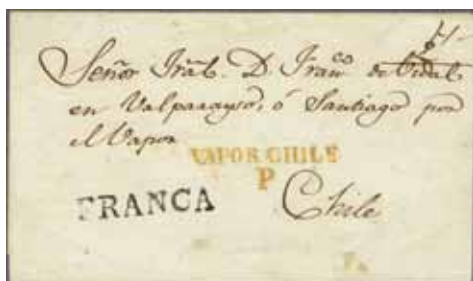 Señor Gral. D. Franco. de Vidal
en Valparayso, ó Santiago por
el Vapor
VAPOR CHILE
P
FRANCA
Chile